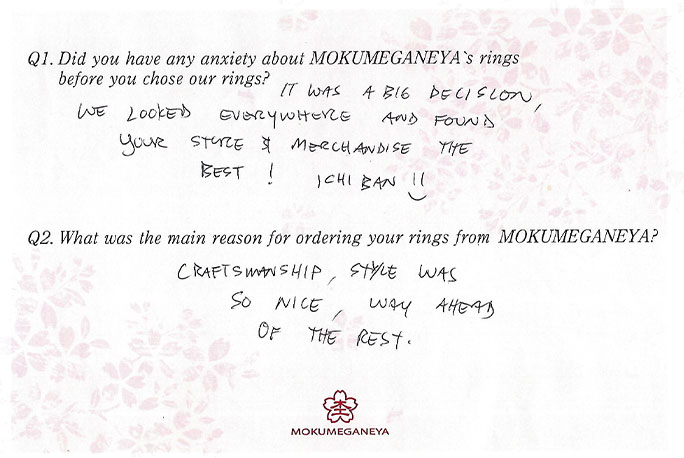 Q1. Did you have any anxiety about MOKUMEGANEYA`s rings
before you chose our rings?
IT WAS A BIG DECISION,
WE LOOKED EVERYWHERE AND FOUND
YOUR STORE & MERCHANDISE THE
BEST! ICHIBAN!!
Q2. What was the main reason for ordering your rings from MOKUMEGANEYA?
CRAFTSMANSHIP, STYLE WAS
SO NICE, WAY AHEAD
OF THE REST.
MOKUMEGANEYA